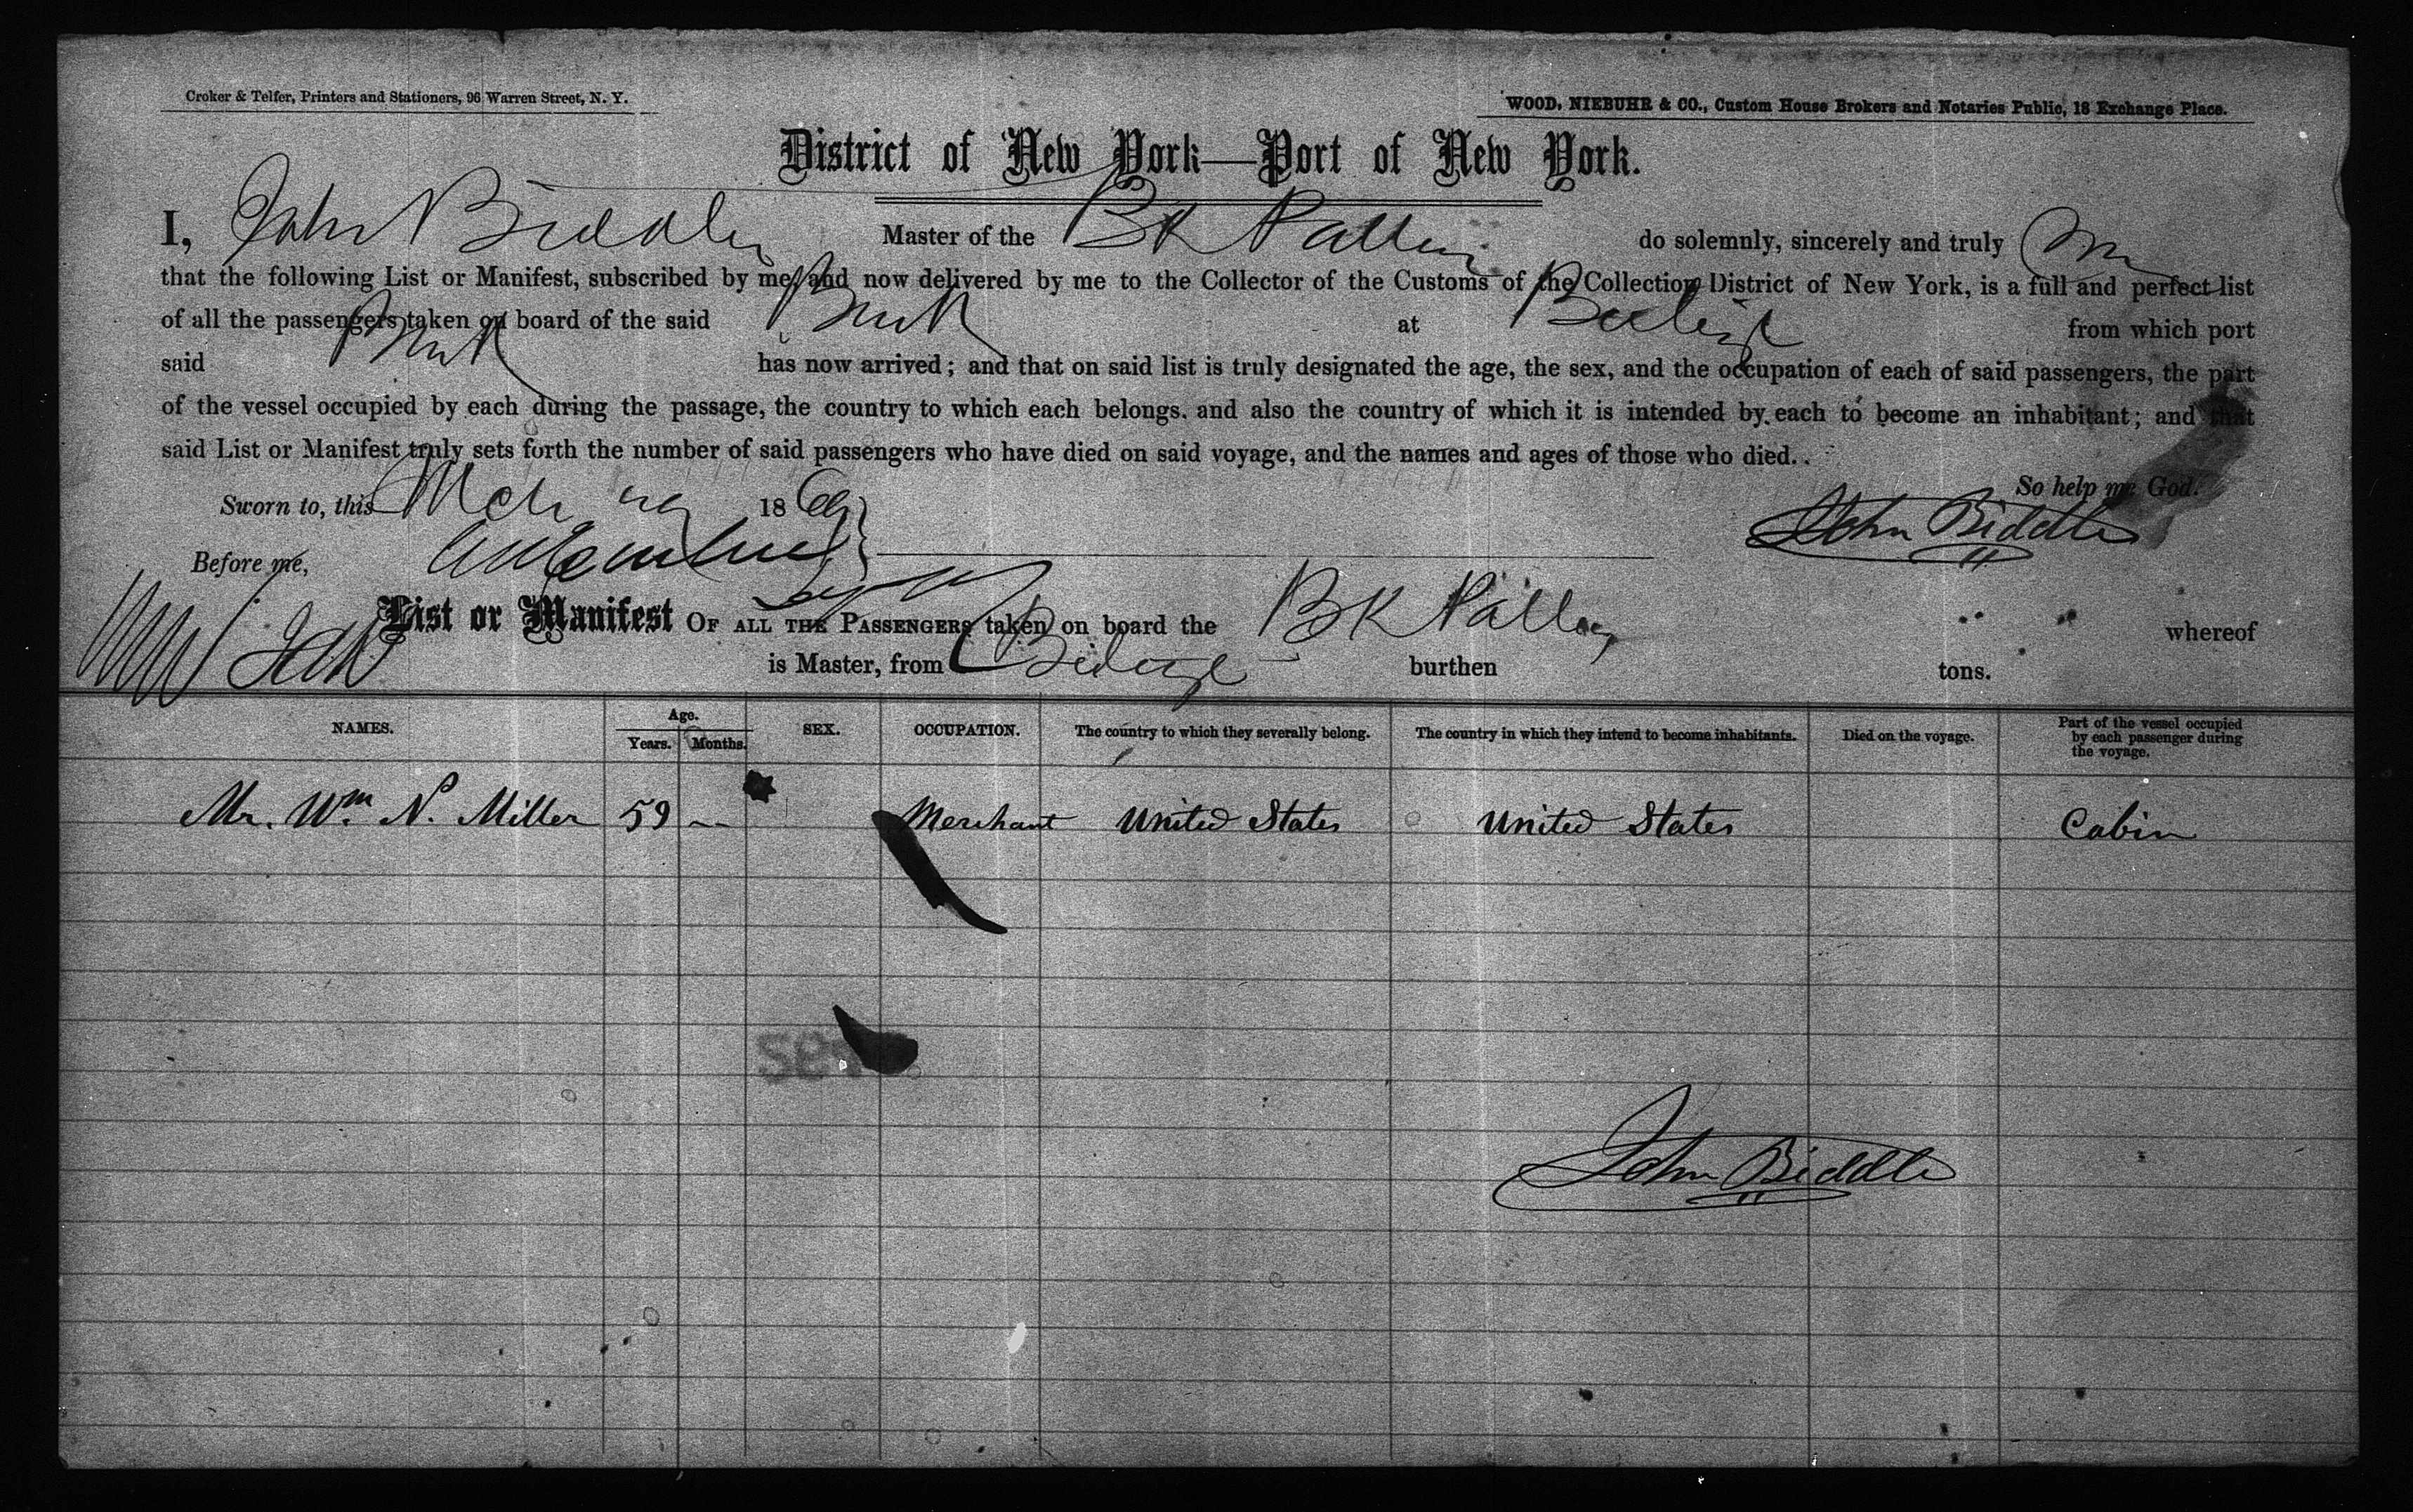 Croker & Telfer, Printers and Stationers, 96 Warren Street, N. Y.
WOOD, NIEBUHR & CO., Custom House Brokers and Notaries Public, 18 Exchange Place.
District of New York—Port of New York.
I, John Biddle Master of the Bk do solemnly, sincerely and truly
that the following List or Manifest, subscribed by me, and now delivered by me to the Collector of the Customs of the Collection District of New York, is a full and perfect list
of all the passengers taken on board of the said Bark at Belize from which port
said Bark has now arrived; and that on said list is truly designated the age, the sex, and the occupation of each of said passengers, the part
of the vessel occupied by each during the passage, the country to which each belongs, and also the country of which it is intended by each to become an inhabitant; and that
said List or Manifest truly sets forth the number of said passengers who have died on said voyage, and the names and ages of those who died.
So help me God.
Sworn to, this Mch 1869
John Biddle
Before me,
List or Manifest OF ALL THE PASSENGERS taken on board the Bk whereof
is Master, from Belize burthen tons.
NAMES. Age. Years. Months. SEX. OCCUPATION. The country to which they severally belong. The country in which they intend to become inhabitants. Died on the voyage. Part of the vessel occupied by each passenger during the voyage.
Mr. Wm. N. Miller 59 — Merchant United States United States Cabin
John Biddle